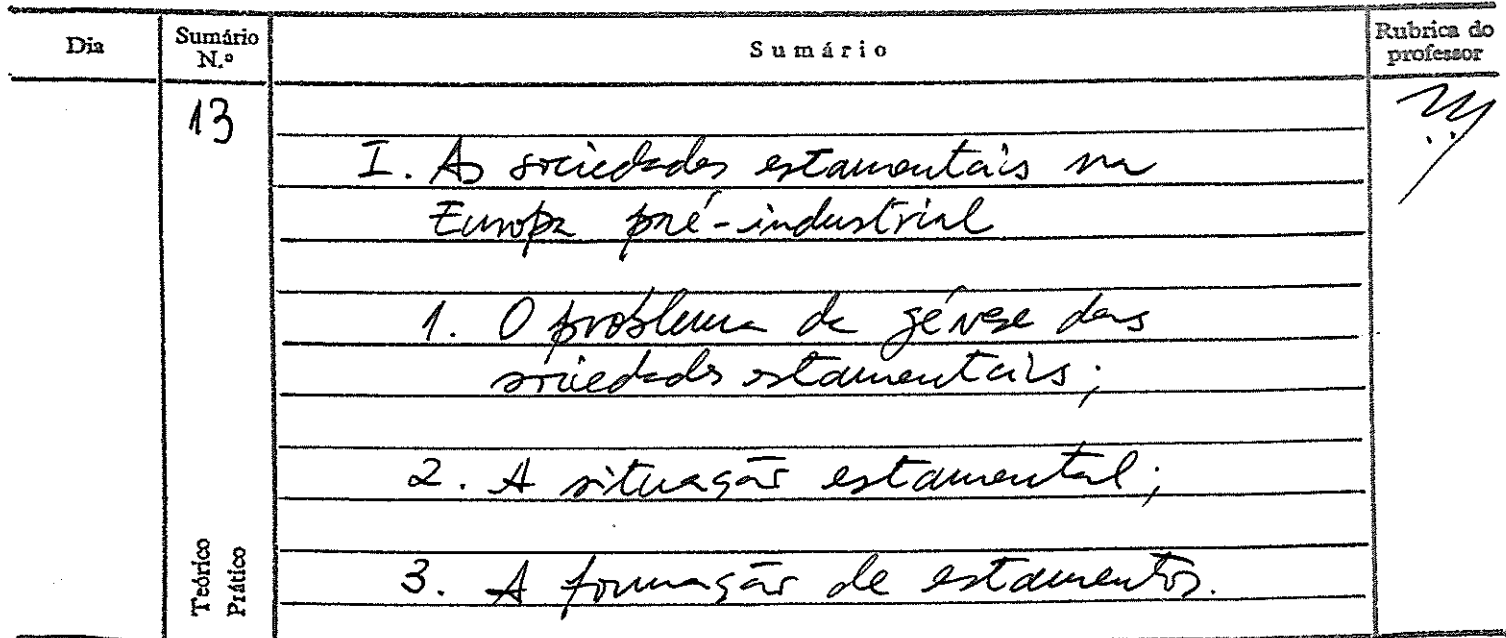 Dia
Sumário N.º
Sumário
Rubrica do professor
13
I. As sociedades estamentais na
Europa pré-industrial
1. O problema da génese das
sociedades estamentais;
2. A situação estamental;
3. A formação de estamentos.
Teórico
Prático